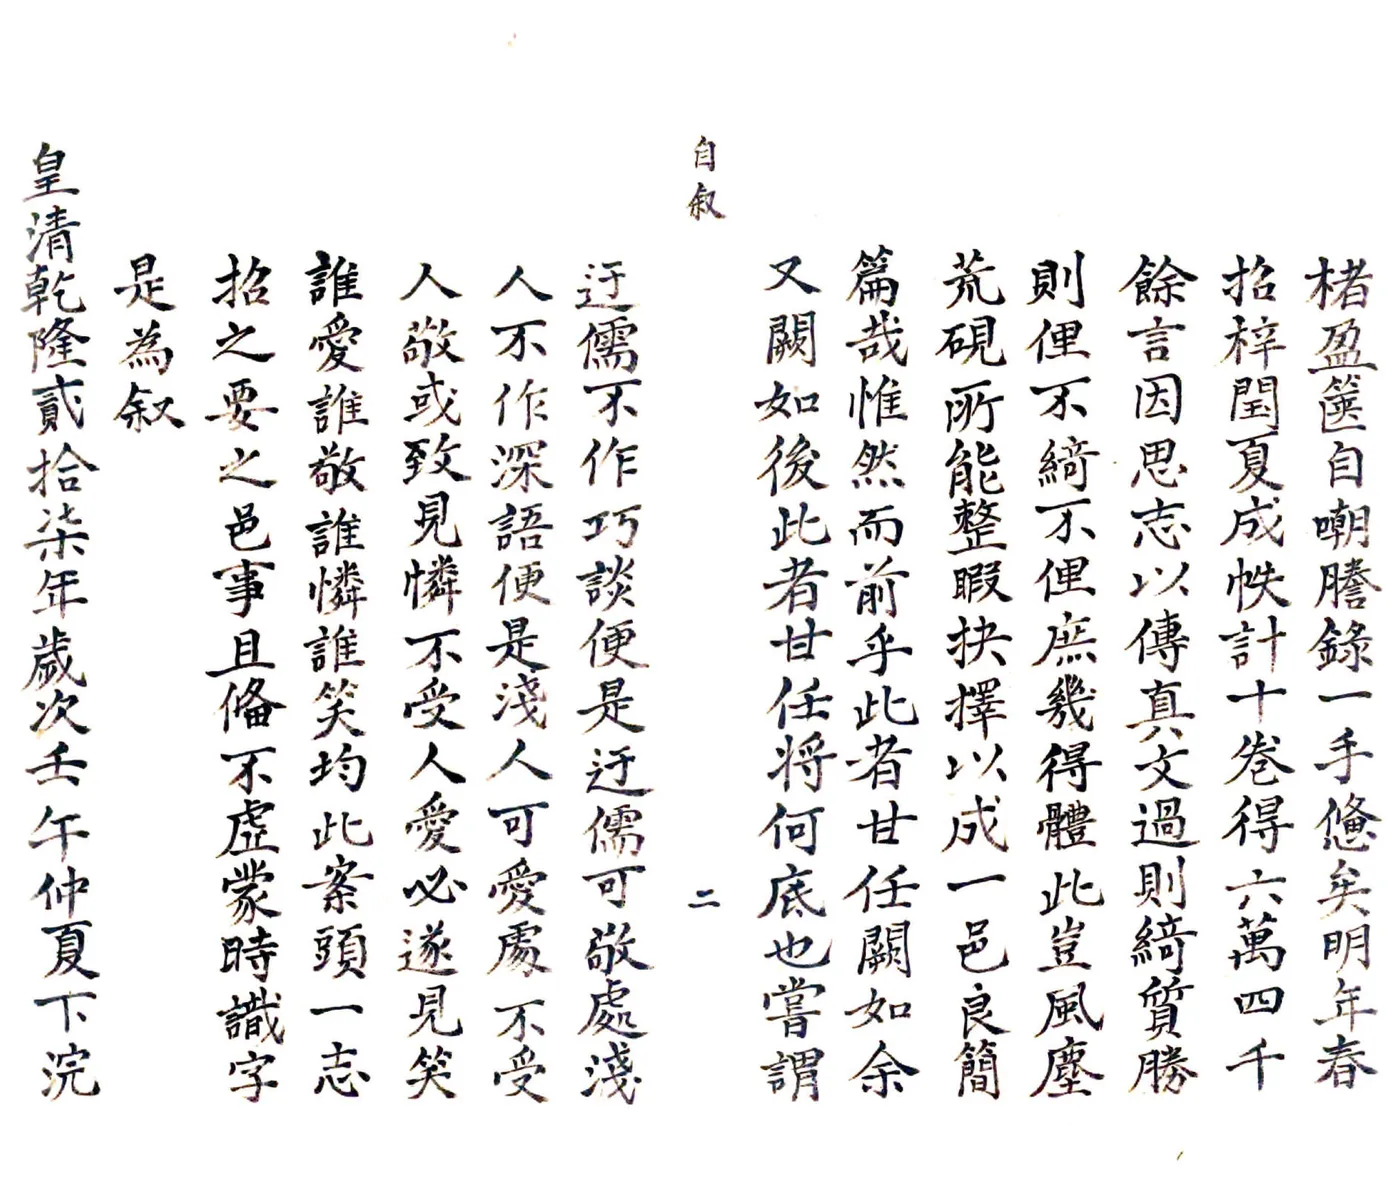 楮盈篋自嘲謄錄一手憊矣明年春
招梓閏夏成帙計十卷得六萬四千
餘言因思志以傳真文過則綺質勝
則俚不綺不俚庶幾得體此豈風塵
荒硯所能整暇抉擇以成一邑良簡
篇哉惟然而前乎此者甘任闕如余
又闕如後此者甘任將何底也嘗謂
自叙
二
迂儒不作巧談便是迂儒可敬處淺
人不作深語便是淺人可愛處不受
人敬或致見憐不受人愛必遂見笑
誰愛誰敬誰憐誰笑均此案頭一志
招之要之邑事且俻不虛蒙時識字
是為叙
皇清乾隆貳拾柒年歲次壬午仲夏下浣